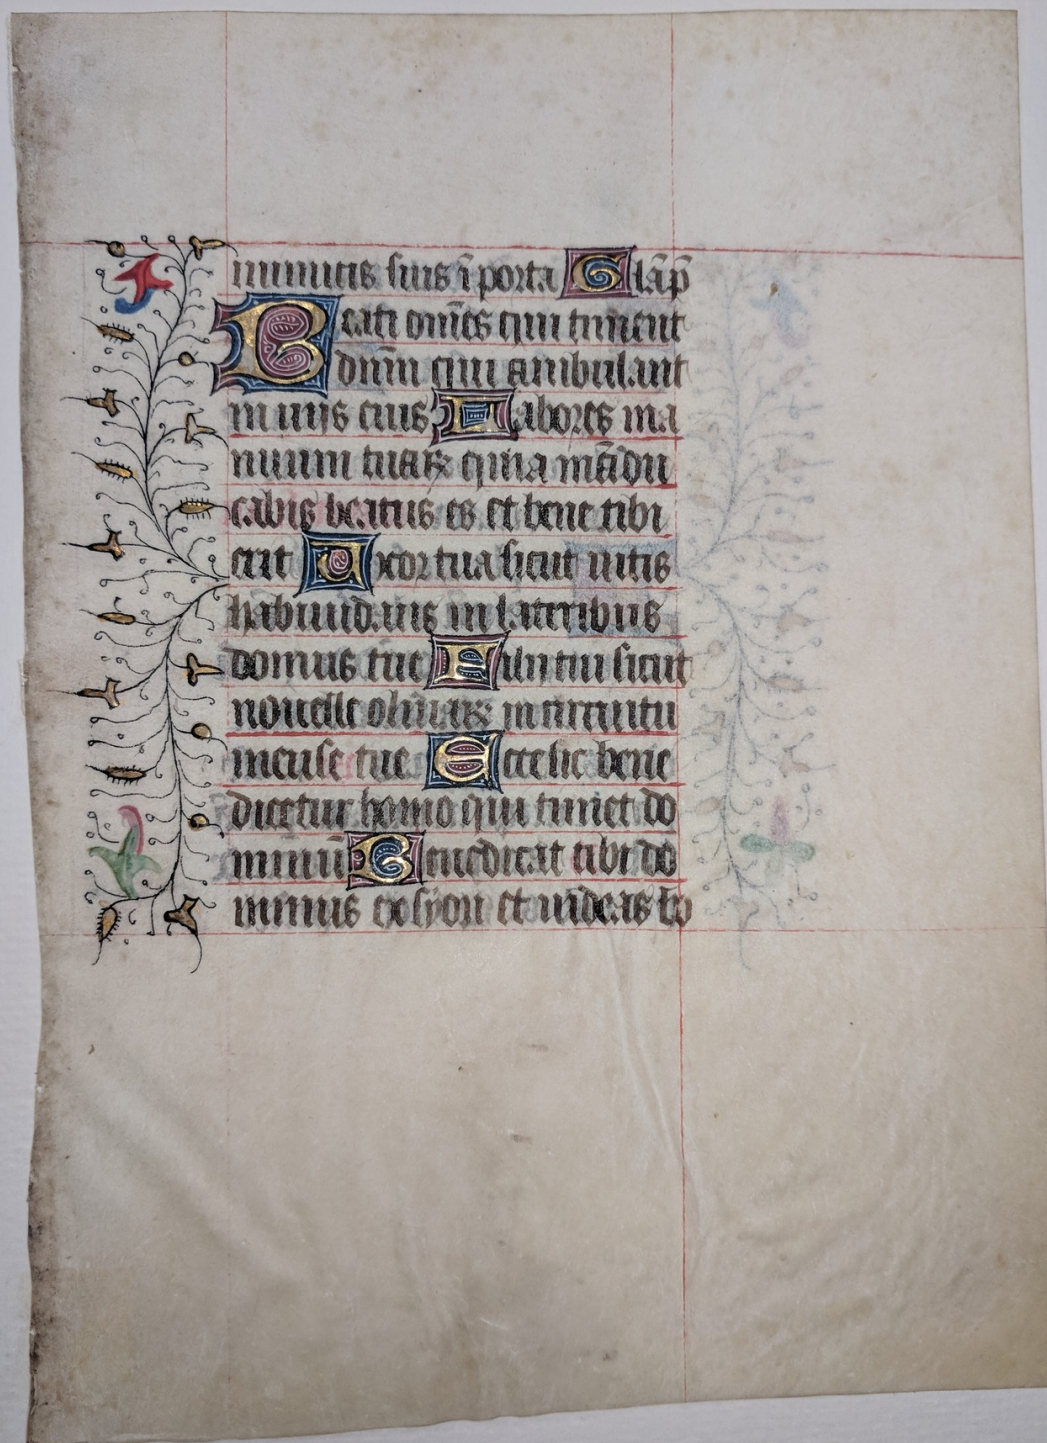 inimicis suis ī porta Glāp̄
Beati om̄es qui timent
dn̄m̄ qui ambulant
in uijs eius Labores ma
nuum tuaꝝ quia mādu
cabis beatus es et bene tibi
erit Uxor tua sicut uitis
habundans in lateribus
domus tue Filii tui sicut
nouelle oliuaꝝ in circuitu
mense tue Ecce sic bene
dicetur homo qui timet do
minū Benedicat tibi do
minus ex syon et uideas bo